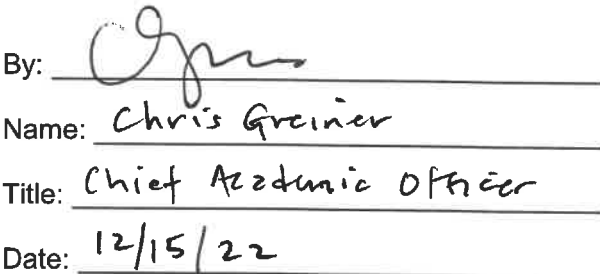 By:
Name: Chris Greiner
Title: Chief Academic Officer
Date: 12/15/22